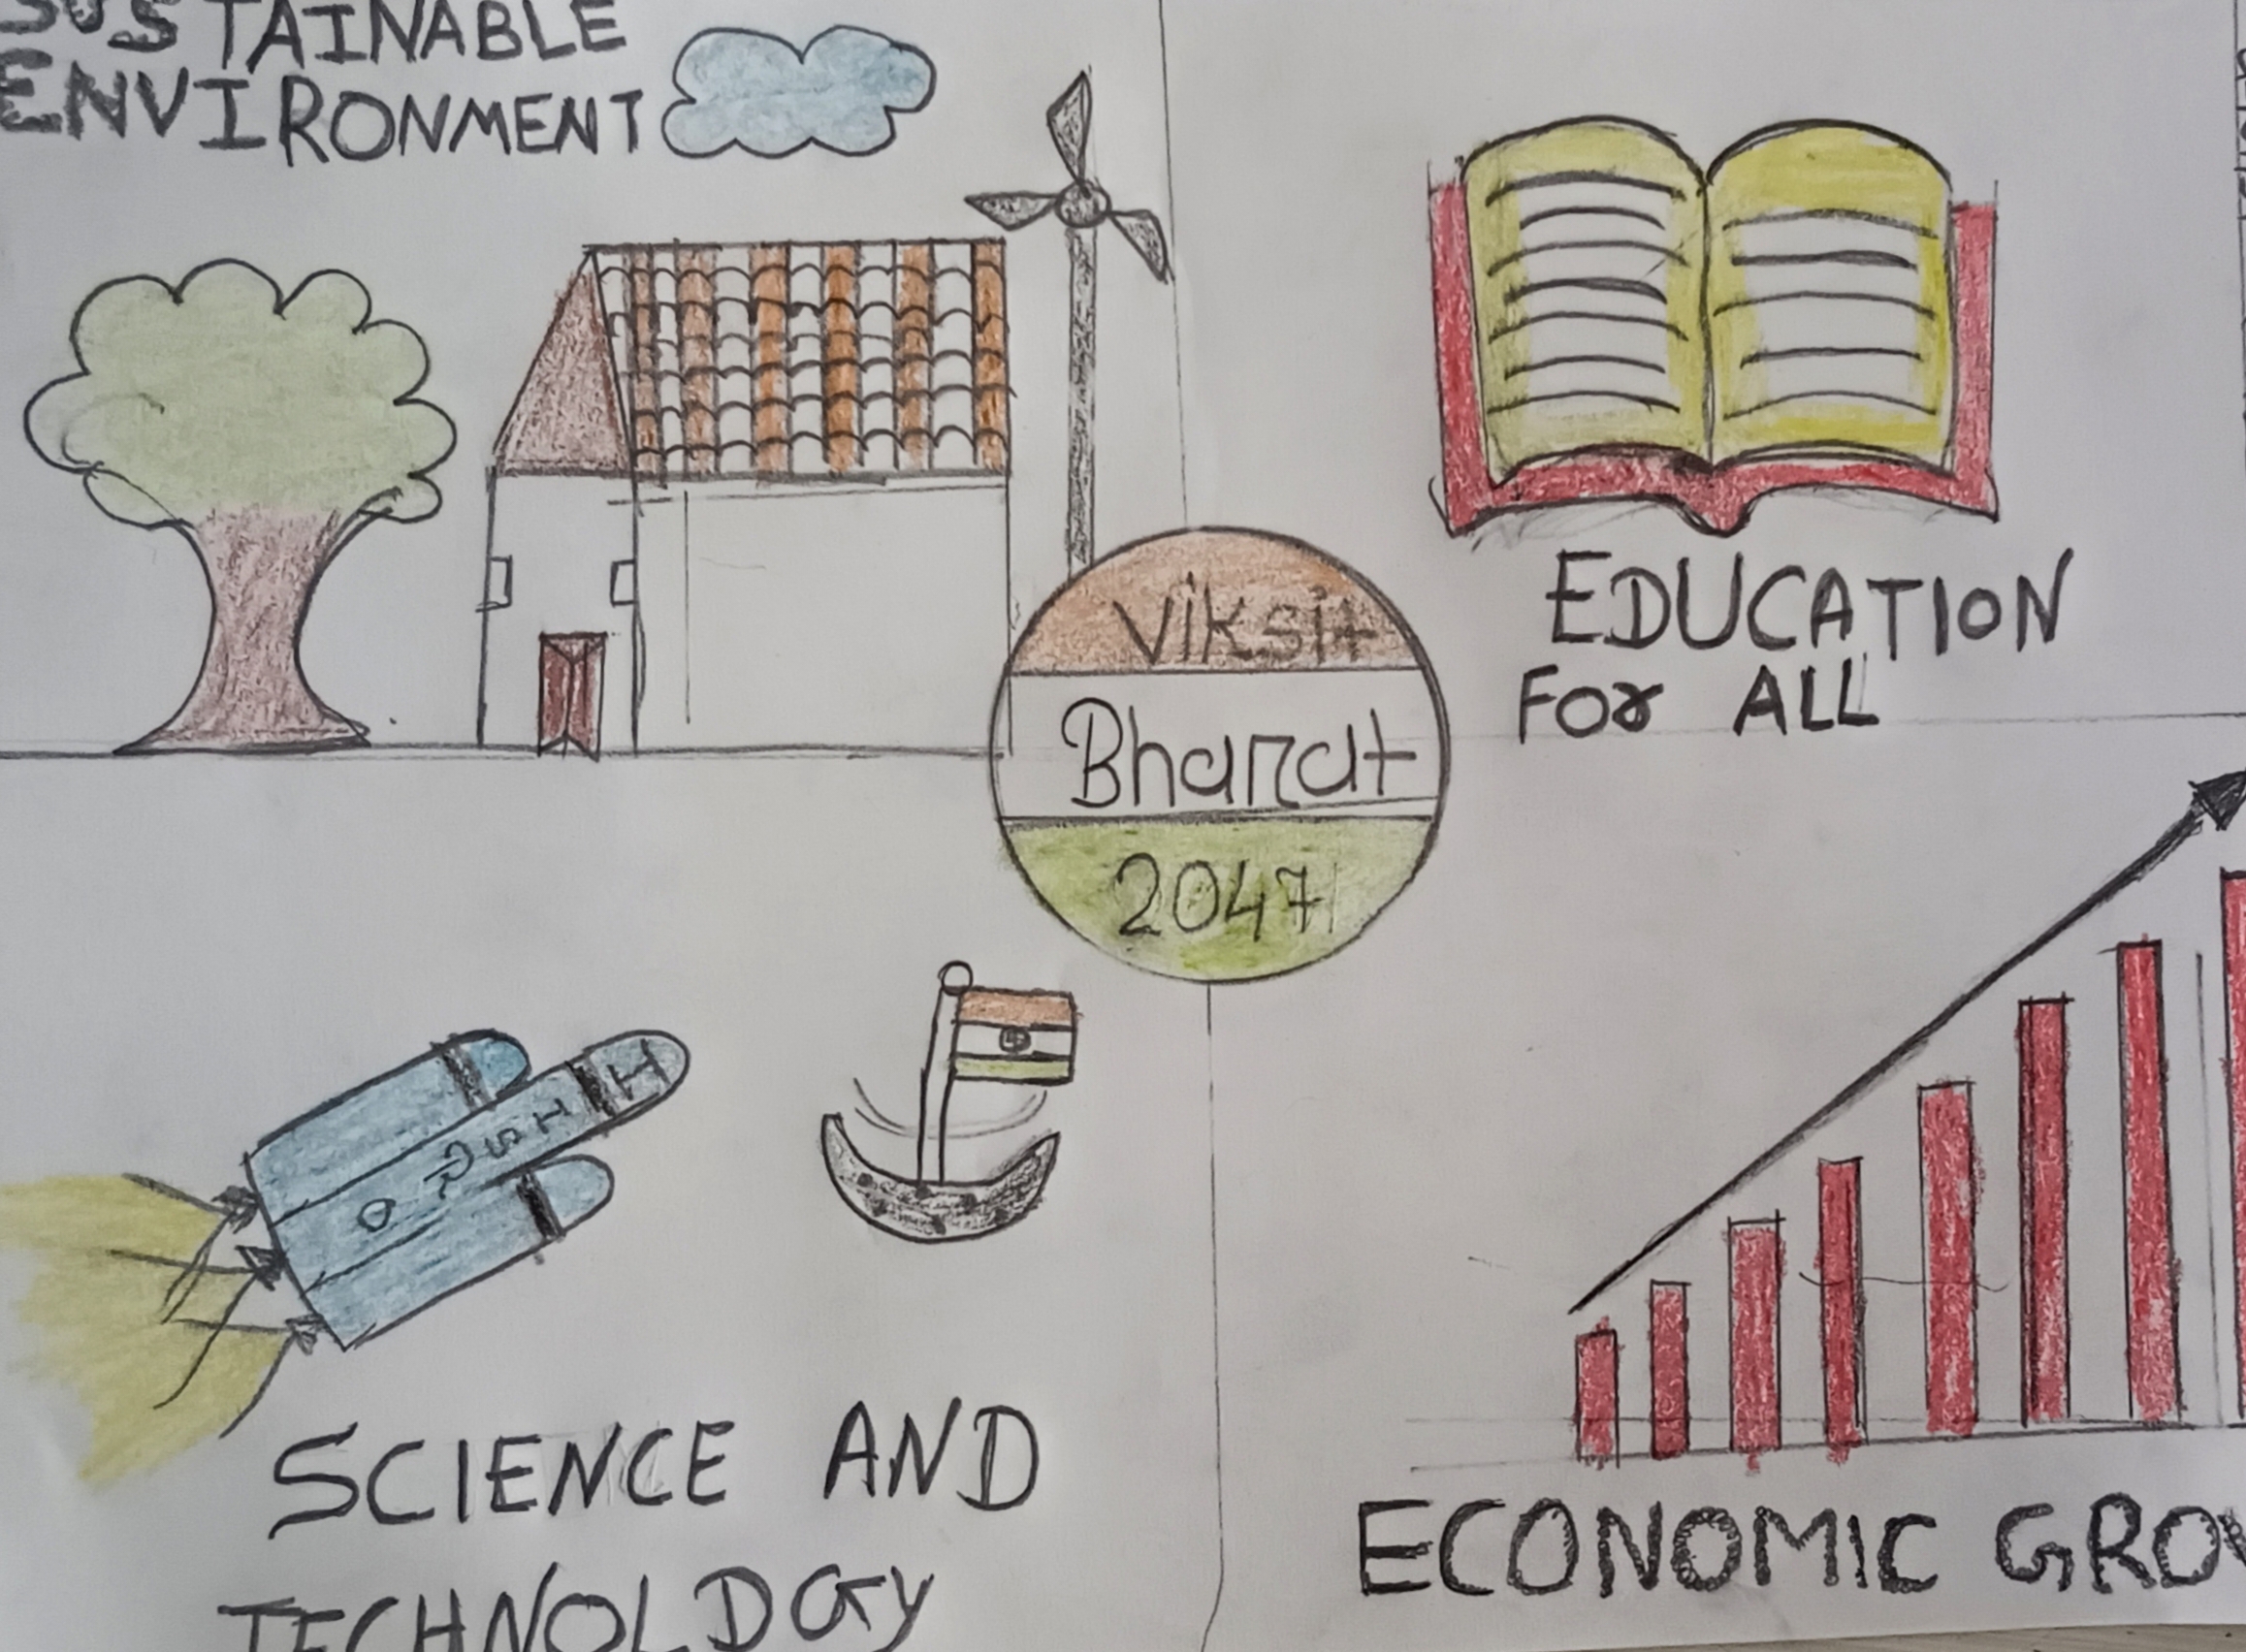 SUSTAINABLE
ENVIRONMENT
EDUCATION
FOR ALL
Viksit
Bharat
2047
SCIENCE AND
TECHNOLOGY
ECONOMIC GROW